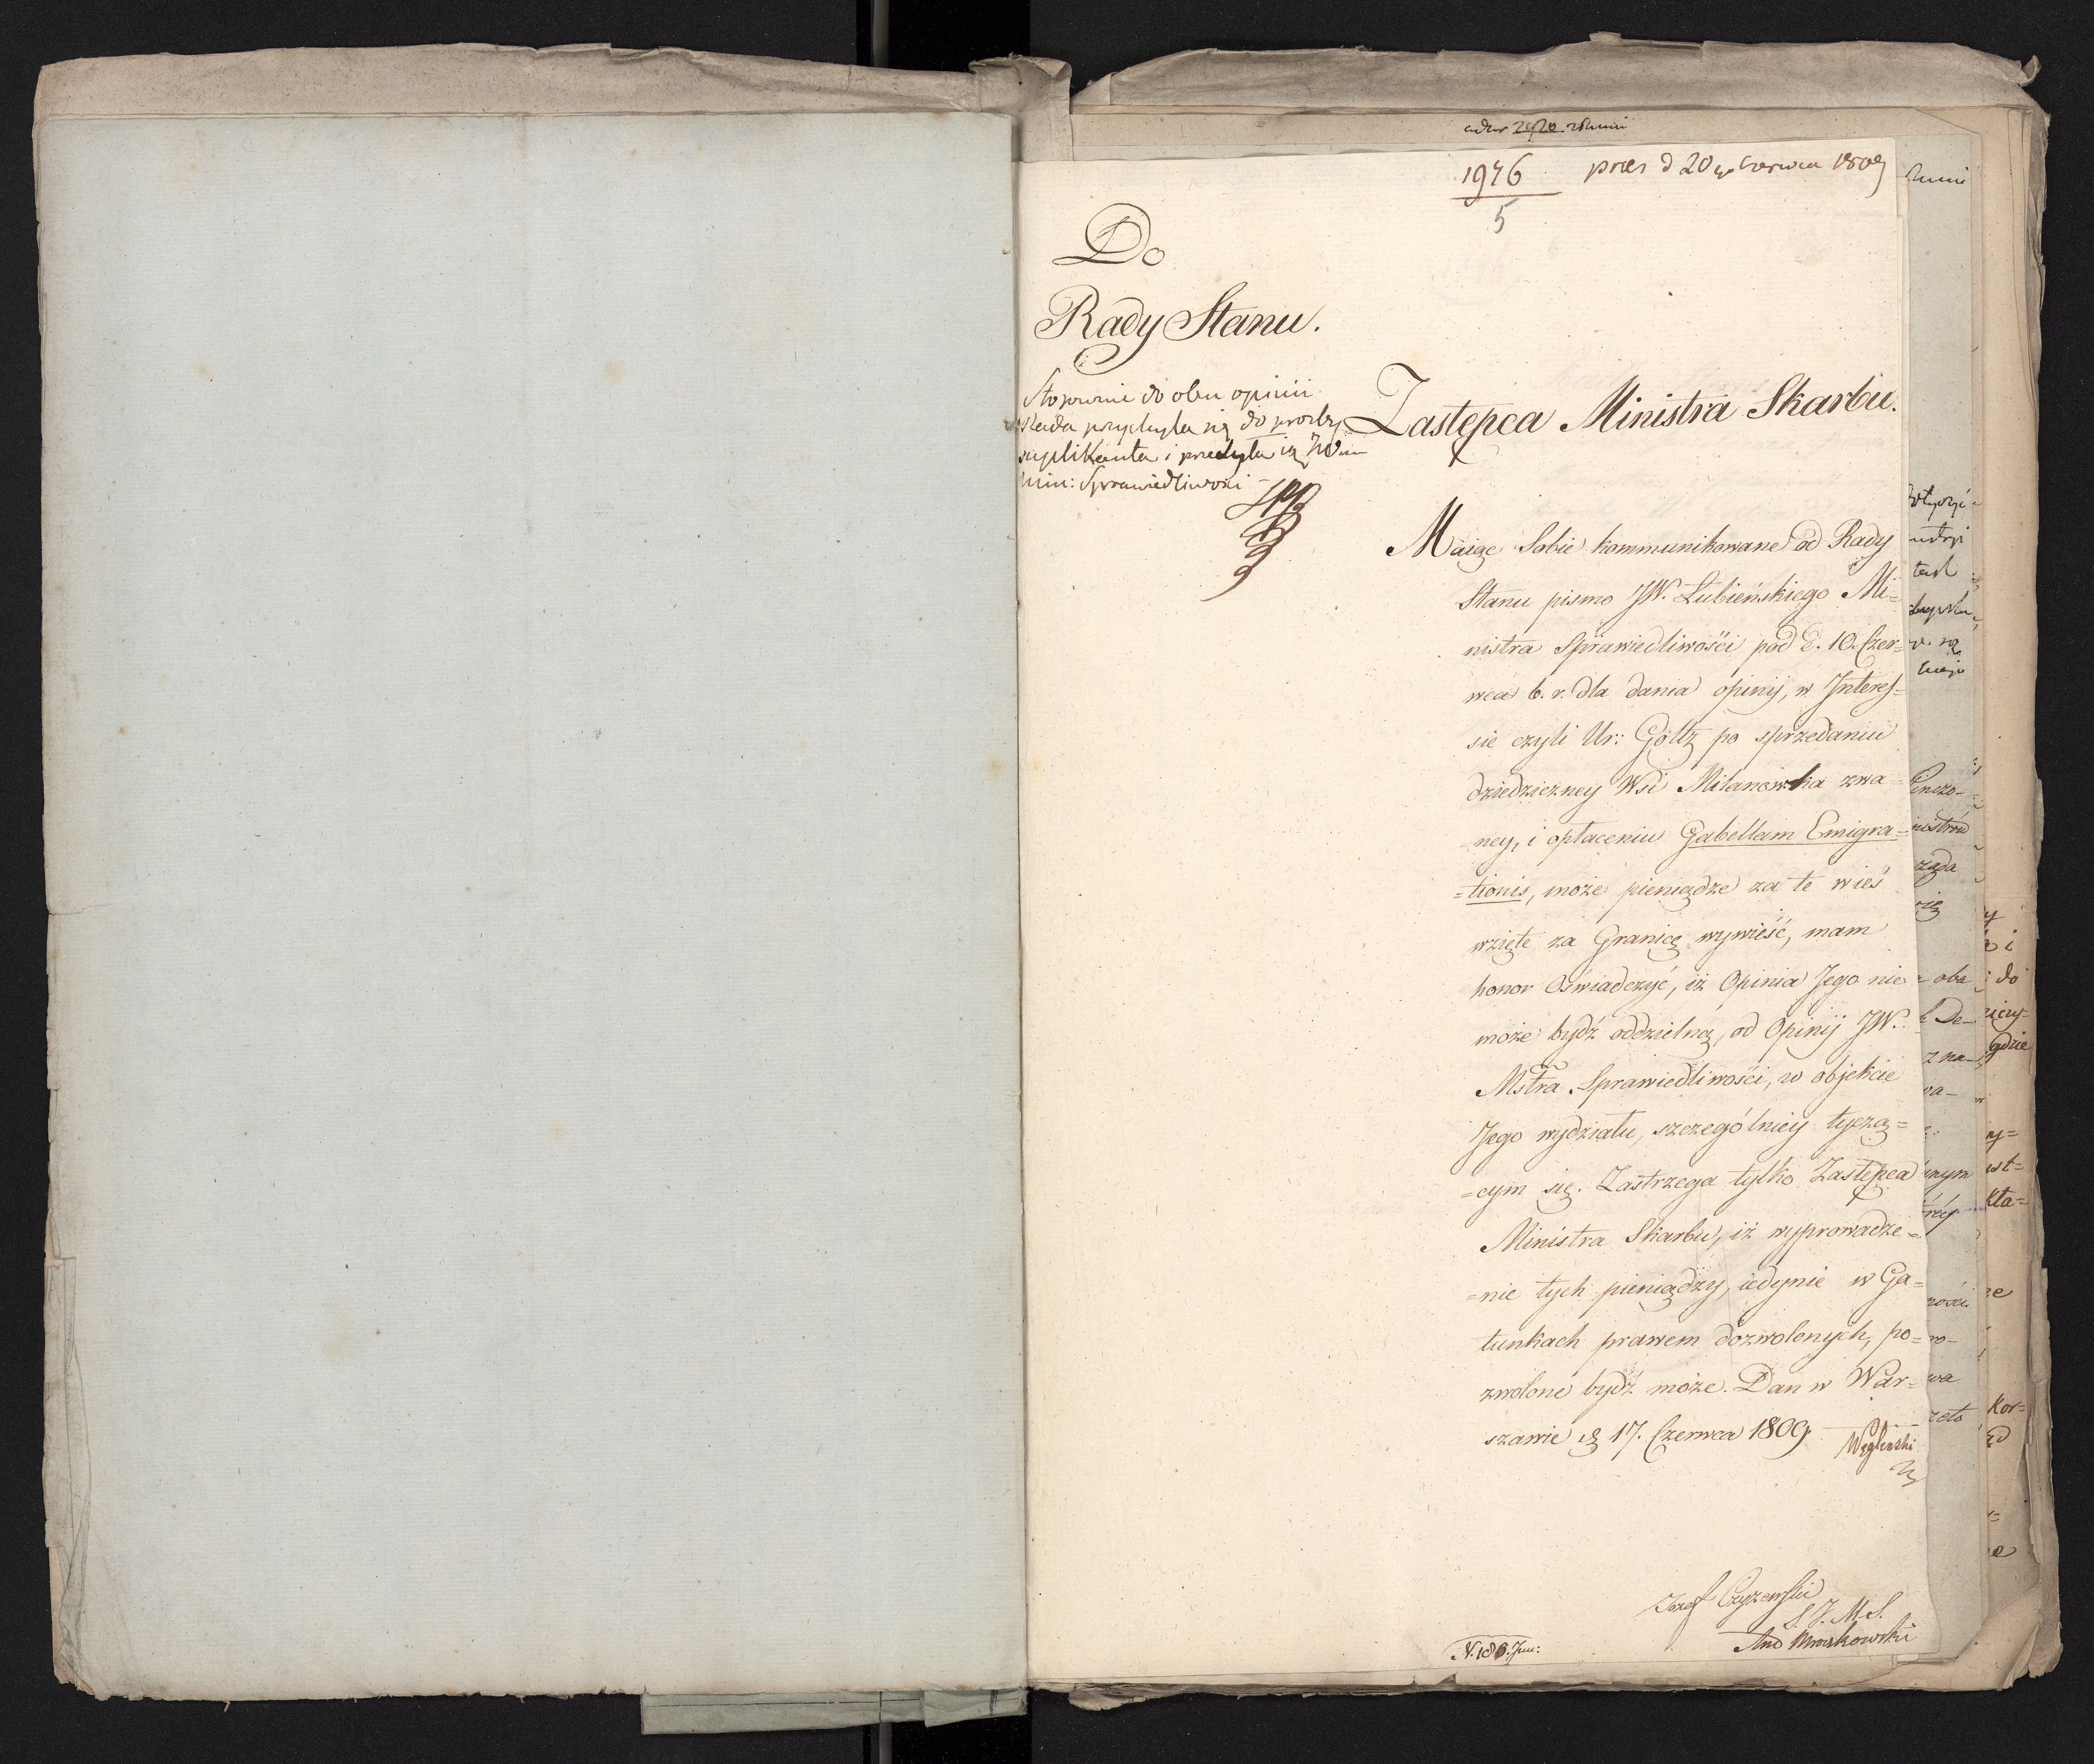 1976
pres d 20 go Czerwca 1809
5
Do
Rady Stanu.
Stosownie do obu opinii
Rada przychyla się do prozby
suplikanta i przesyła ią JW
Min: Sprawiedliwości
Zastępca Ministra Skarbu.
Maiąc Sobie kommunikowane od Rady
Stanu pismo JW. Lubieńskiego Mi=
nistra Sprawiedliwości pod d. 10. Czer=
wca b. r. dla dania opinij, w Interes=
sie czyli Ur: Göltz po sprzedaniu
dziedziczney Wsi Milanowka zwa=
ney, i opłaceniu Gabellam Emigra=
=tionis, może pieniądze za te wieś
wzięte za Granicę wywieść, mam
honor Oświadczyć, iż Opinia Jego nie
może bydź oddzielną, od Opinij JW.
Mstra Sprawiedliwości, w objekcie
Jego wydziału, szczególniey tyczą=
=cym się. Zastrzega tylko Zastępca
Ministra Skarbu, iż wyprowadze=
=nie tych pieniądzy, iedynie w Ga=
tunkach prawem dozwolonych, po=
zwolone bydź może. Dan w War=
szawie d. 17. Czerwca 1809
Węgliński
Jozef Czyzewski
S. J. M. S.
N. 186. Jun: